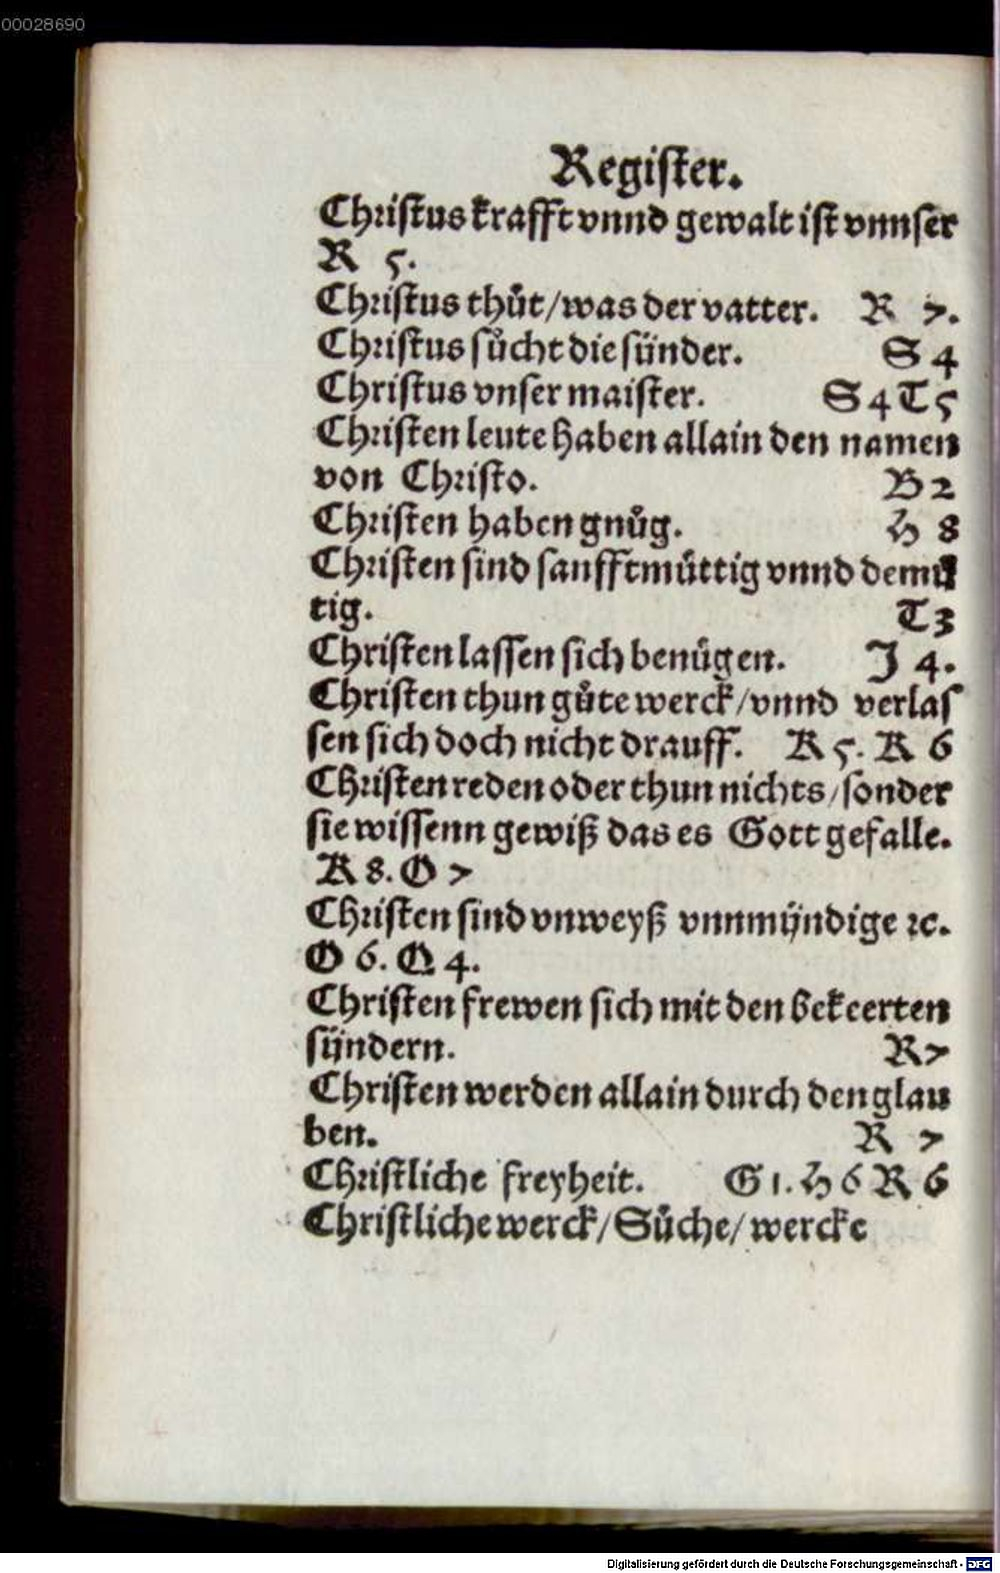 00028690
Regiſter.
Chriſtus krafft vnnd gewalt iſt vnnſer
R 5.
Chriſtus thůt/was der vatter. R 7.
Chriſtus ſůcht die ſünder. S 4
Chriſtus vnſer maiſter. S 4 T 5
Chriſten leute haben allain den namen
von Chriſto. B 2
Chriſten haben gnůg. H 8
Chriſten ſind ſanfftmüttig vnnd demü
tig. T 3
Chriſten laſſen ſich benügen. J 4.
Chriſten thun gůte werck/vnnd verlaſ
ſen ſich doch nicht drauff. K 5. K 6
Chriſten reden oder thun nichts/ſonder
ſie wiſſenn gewiß das es Gott gefalle.
K 8. O 7
Chriſten ſind vnweyß vnnmündige ꝛc.
O 6. Q 4.
Chriſten frewen ſich mit den bekeerten
ſündern. R 7
Chriſten werden allain durch den glau
ben. R 7
Chriſtliche freyheit. G 1. H 6 R 6
Chriſtliche werck/Sůche/wercke
Digitalisierung gefördert durch die Deutsche Forschungsgemeinschaft - DFG